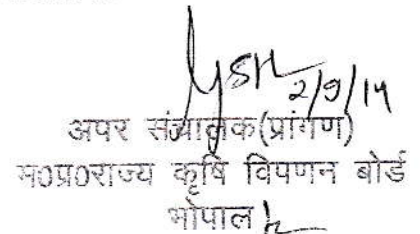 2/9/14
अपर संचालक(प्रांगण)
म०प्र०राज्य कृषि विपणन बोर्ड
भोपाल